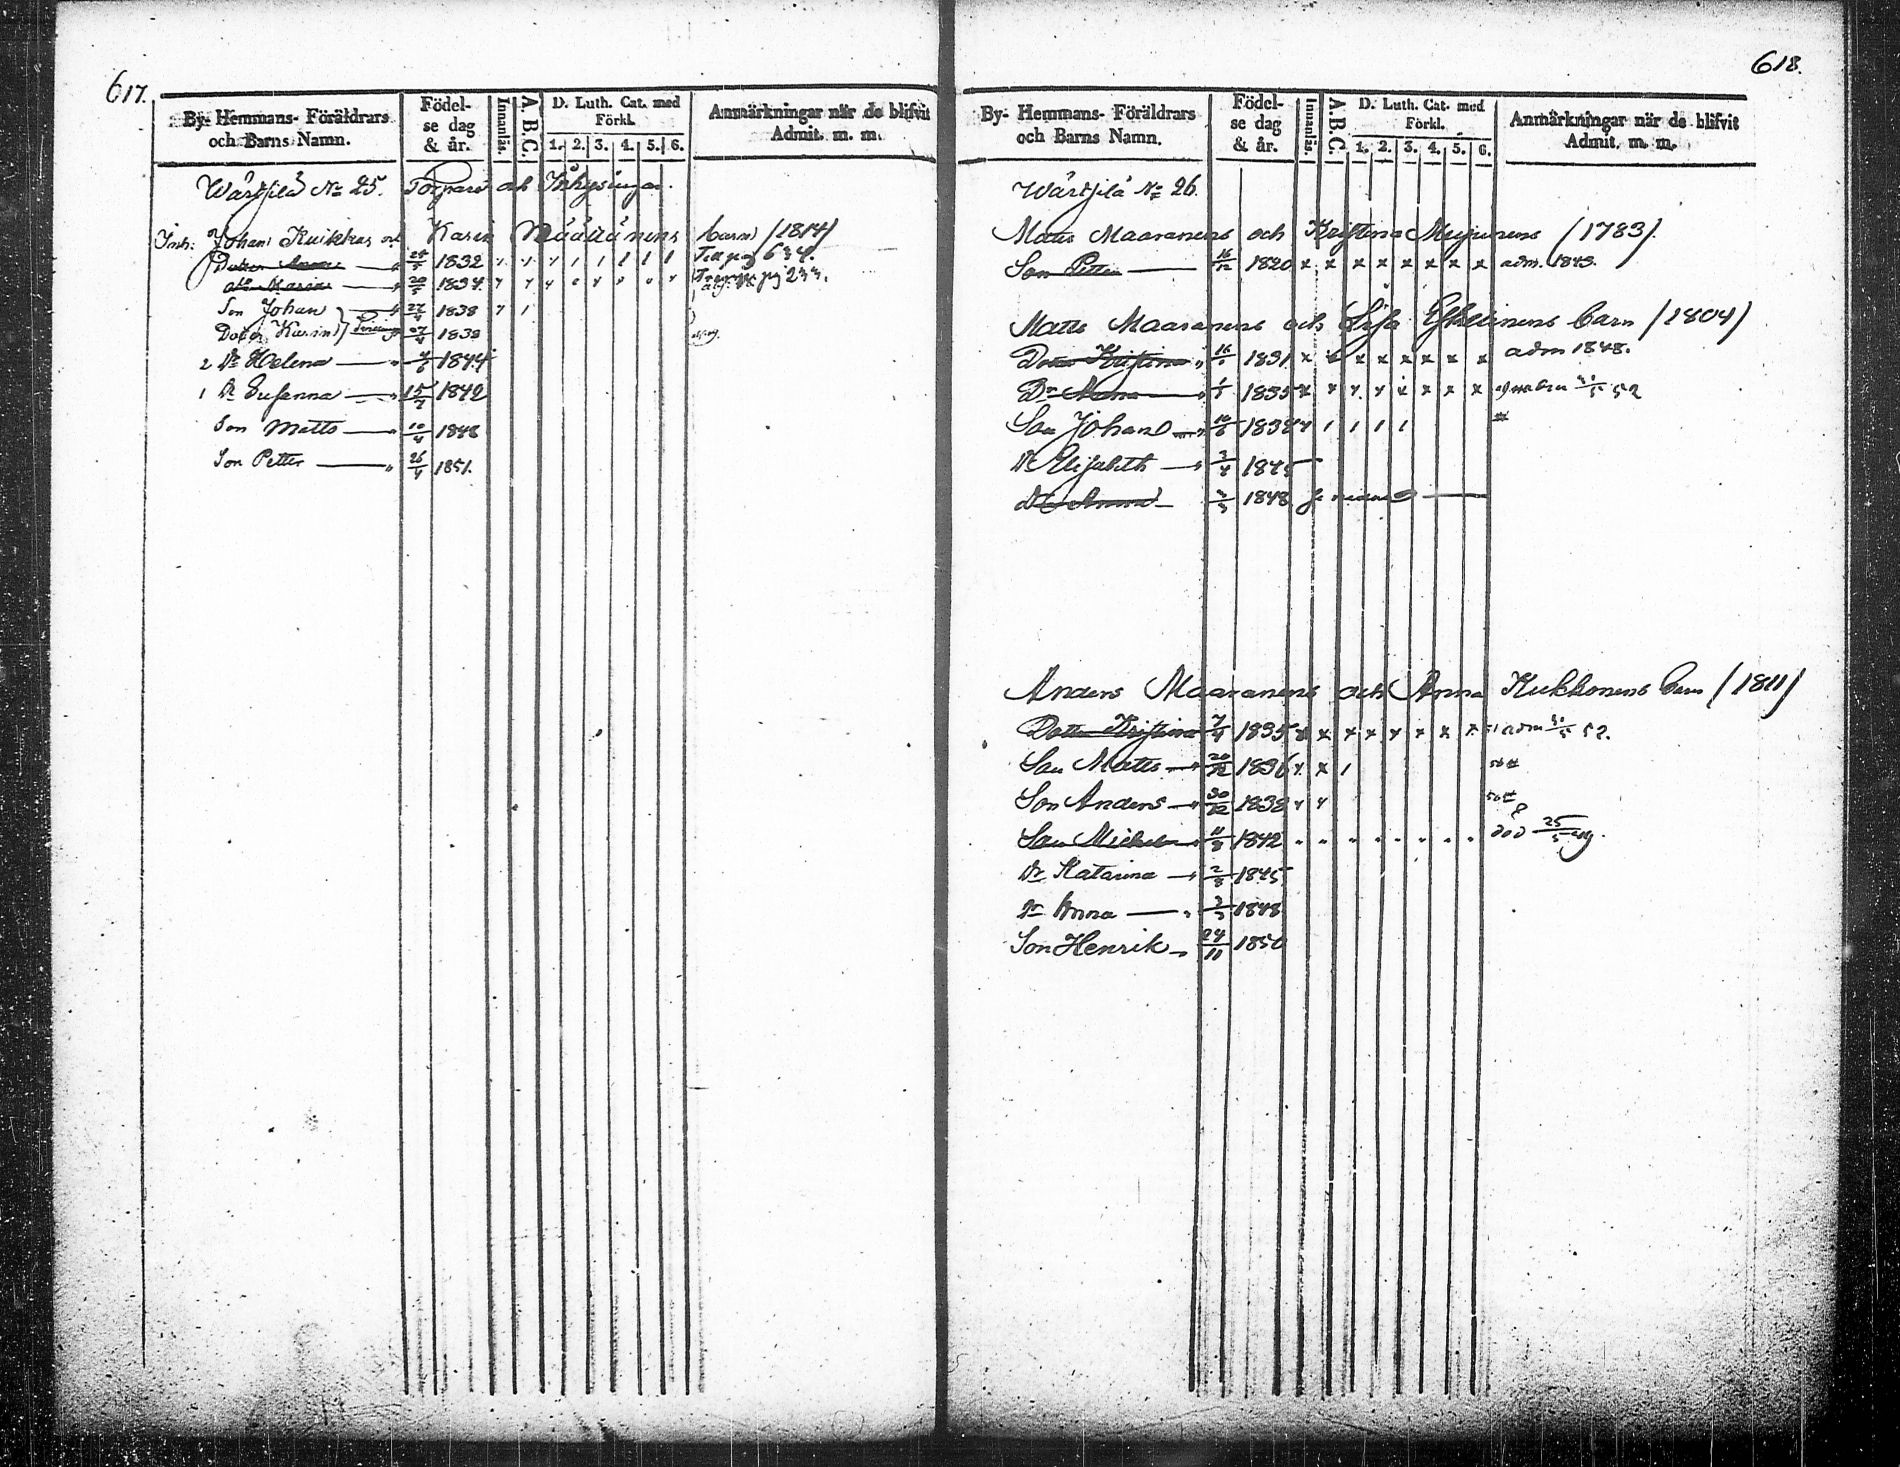 617.
By- Hemmans- Föräldrars och Barns Namn.
Födelse dag & år.
Innanläs.
A.B.C.
D. Luth. Cat. med Förkl.
1. 2. 3. 4. 5. 6.
Anmärkningar när de blifvit Admit. m. m.
Wärtsilä No 25. Torpare och Inhysingar.
Inh: Johan Kuikkas och Karin Määttänens barn (1814)
Dotter Anna 1832 Till pag 634.
Dr Maria 20/5 1834 pag 233.
Son Johan 27/4 1838
Dotter Karin 27/4 1838
2 Dr Helena 1844
1 Dr Susanna 15/7 1842
Son Matts 10/4 1848
Son Petter 26/4 1851.
618.
By- Hemmans- Föräldrars och Barns Namn.
Födelse dag & år.
Innanläs.
A.B.C.
D. Luth. Cat. med Förkl.
1. 2. 3. 4. 5. 6.
Anmärkningar när de blifvit Admit. m. m.
Wärtsilä No 26.
Matts Maaranens och Kristina Mujunens (1783)
Son Petter 16/12 1820 x x x x x x x x adm. 1843.
Matts Maaranens och Lisa Eskelinens barn (1804)
Dotter Kristina 1831 x x x x x x x adm 1848.
Dr Anna 1835 x x x x x x x x 52
Son Johan 1838
Dr Elisabeth 2/4 1845
Dr Anna 3/3 1848
Anders Maaranens och Anna Kukkonens barn (1811)
Dotter Kristina 7/4 1835 x x x x x x x x adm 52.
Son Matts 20/12 1836 x x 1
Son Anders 30/12 1838
Son Michel 11/8 1842 död 25/5 49.
Dr Katarina 2/8 1845
Dr Anna 3/3 1848
Son Henrik 24/11 1850